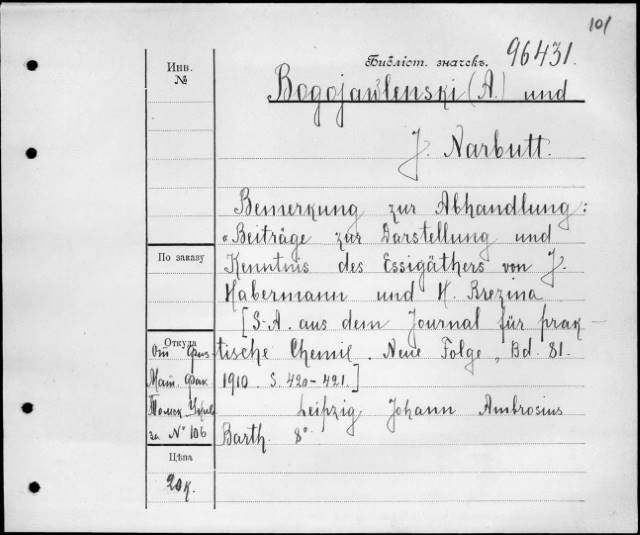 101
Инв.
№
Библіот. значекъ. 96431.
Bogojawlenski (A.) und
J. Narbutt.
Bemerkung zur Abhandlung:
"Beiträge zur Darstellung und
Kenntnis des Essigäthers von J.
Habermann und H. Brezina
[S-A. aus dem Journal für prak-
tische Chemie. Neue Folge, Bd. 81.
1910. S. 420-421.]
Leipzig Johann Ambrosius
Barth. 8°.
По заказу
Откуда
От
Мат. Фак
за № 106
Цѣна
20к.